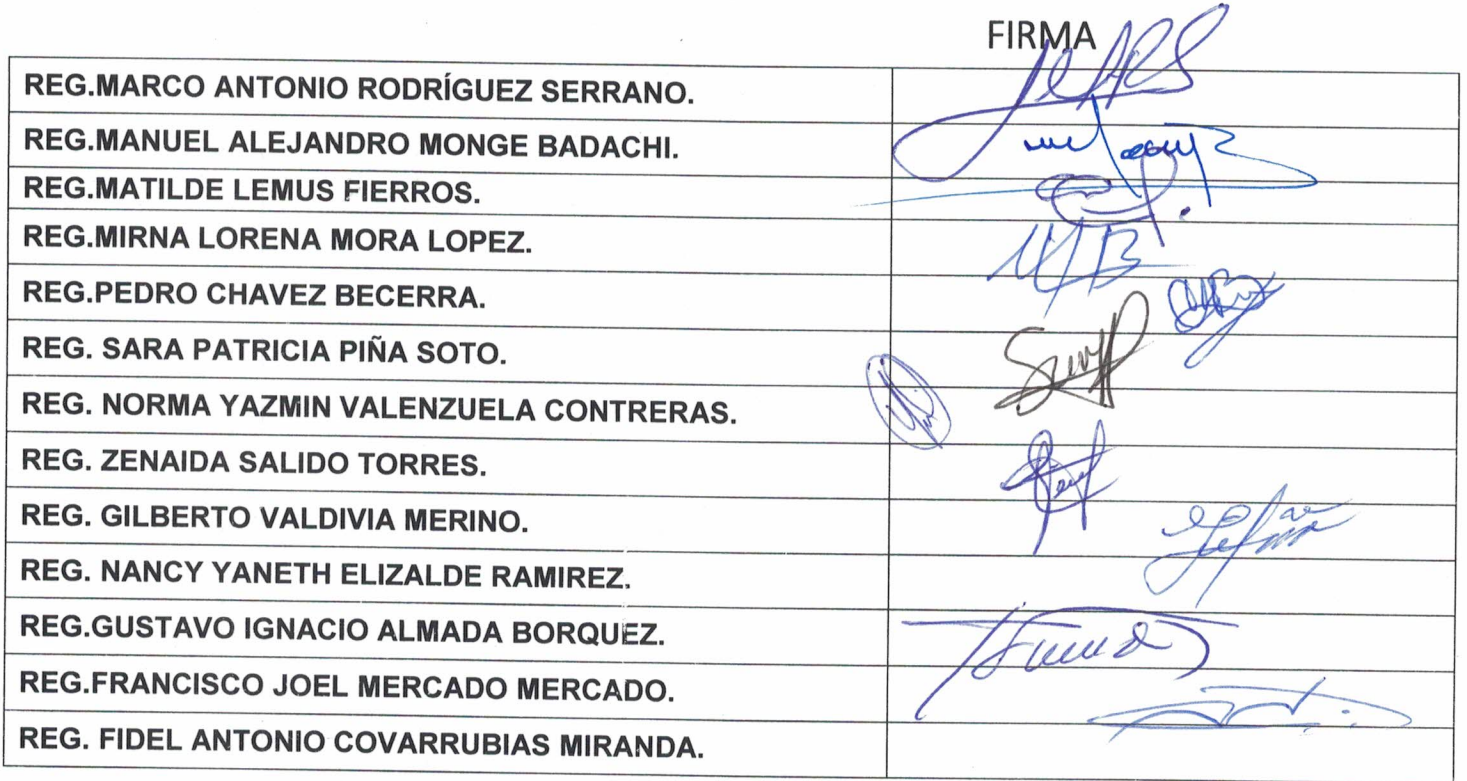 FIRMA
REG.MARCO ANTONIO RODRÍGUEZ SERRANO.
REG.MANUEL ALEJANDRO MONGE BADACHI.
REG.MATILDE LEMUS FIERROS.
REG.MIRNA LORENA MORA LOPEZ.
REG.PEDRO CHAVEZ BECERRA.
REG. SARA PATRICIA PIÑA SOTO.
REG. NORMA YAZMIN VALENZUELA CONTRERAS.
REG. ZENAIDA SALIDO TORRES.
REG. GILBERTO VALDIVIA MERINO.
REG. NANCY YANETH ELIZALDE RAMIREZ.
REG.GUSTAVO IGNACIO ALMADA BORQUEZ.
REG.FRANCISCO JOEL MERCADO MERCADO.
REG. FIDEL ANTONIO COVARRUBIAS MIRANDA.